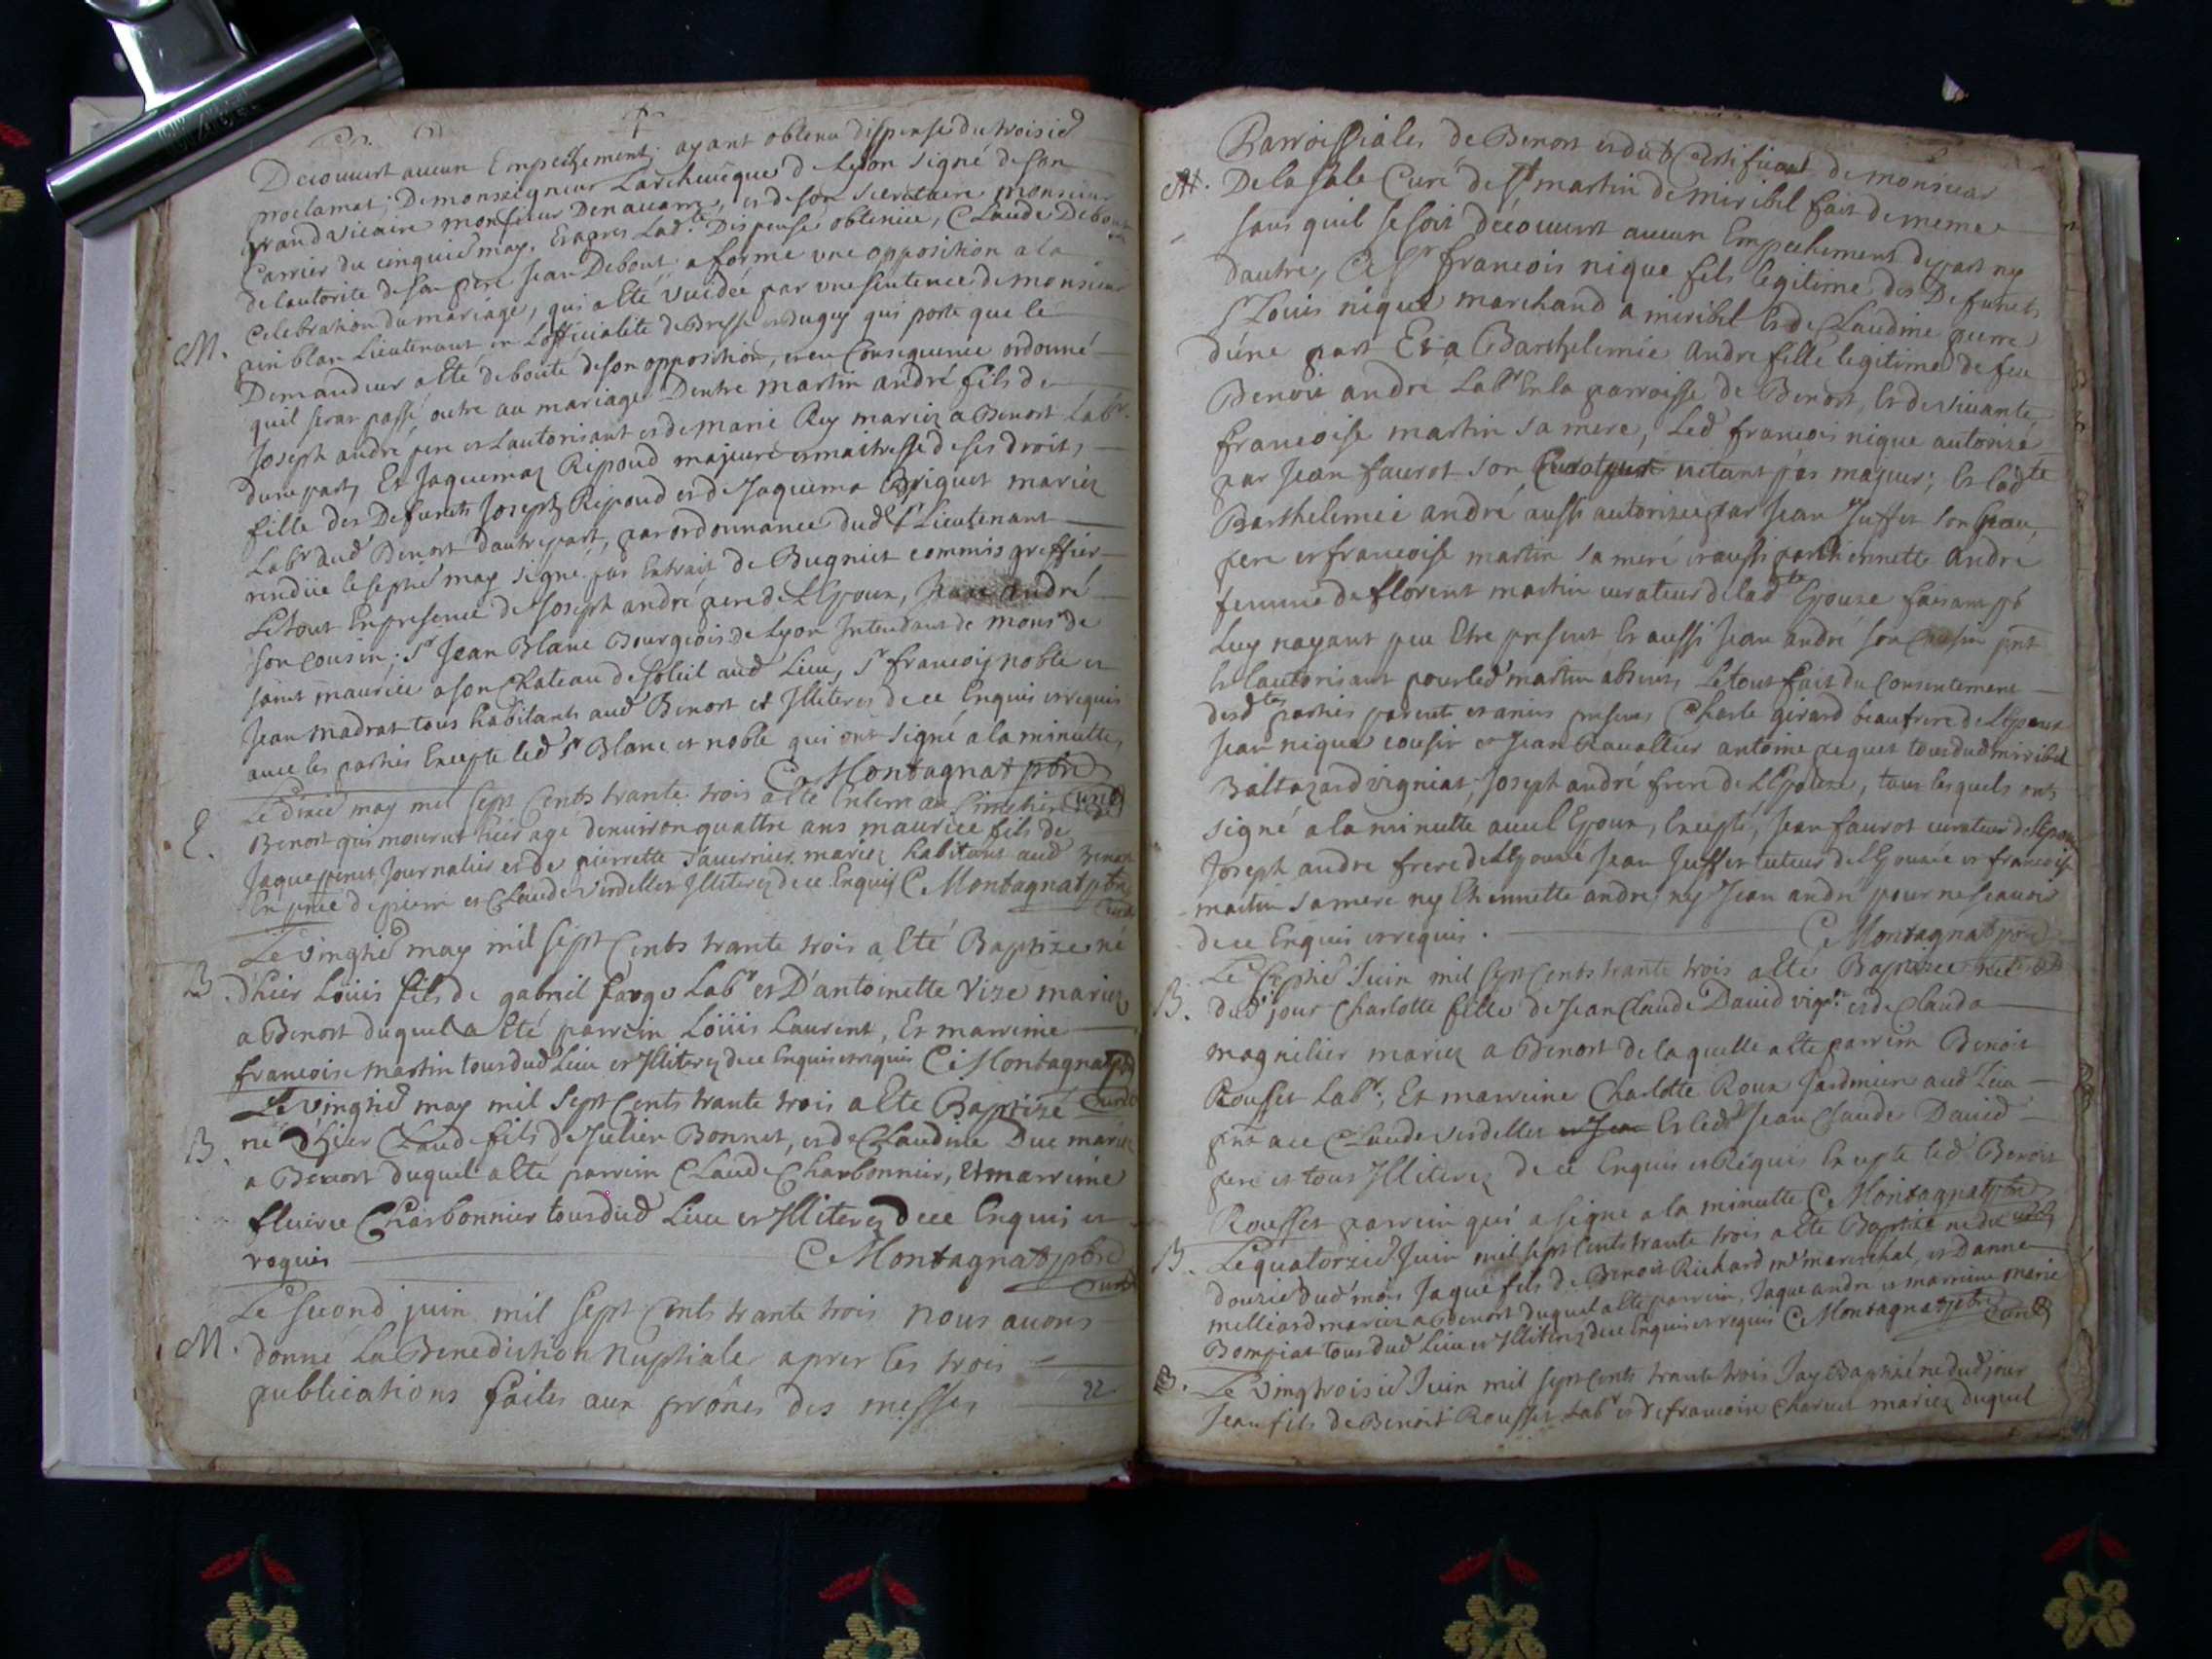 Decouvert aucun Empechement; ayant obtenu dispense du troisie
proclamat; De monseigneur Larcheueque de Lyon signé de son
grand vicaire monsieur Denauarre, et de son secretaire monsieur
Carrier du cinquie may. Et apres Lad.te Dispense obtenüe, Claude Debout
de lautorite de son pere Jean Debout a formé vne opposition a la
celebration du mariage, qui a Eté vuidée par vne sentence de monsieur
M.
Lieutenant en Lofficialité de Bresse et Bugey qui porte que le
Demandeur a Eté debouté de son opposition, et en Consequence ordonné
quil serat passé outre au mariage Dentre martin andré fils de
Joseph andré pere et Lautorisant et de marie Rey mariez a Benost Labr.
dune part, Et Jaquemaz Ripoud majeure et maitresse de ses droits,
fille des Defuncts Joseph Ripoud et de Jaquema Briguet mariez
Labr aud Benost dautre part, par ordonnance dud sr Lieutenant
rendüe le septie may signé par Extrait de Bugniet commis greffier
Le tout En presence de Joseph andré pere de LEpoux, Jean andré
son cousin; Sr Jean Blanc Bourgeois de Lyon Intendant de monsr de
saint maurice a son Chateau de soleil aud Lieu, Sr francois noble et
Jean madrat tous habitants aud Benost et Illiterez de ce Enquis et requis
auec les parties Excepte led Sr Blanc et noble qui ont signé a la minutte,
C Montagnat ptre
Curé
Le dixie may mil sept Cents trante trois a eté Enterré au Cimetiere
E.
Benost qui mourut hier agé denuiron quattre ans maurice fils de
Jaque penet Journalier et de pierrette Sauernier mariez habitants aud Benost
En pnce de pierre et Claude Verdellet Illiterez de ce Enquis C Montagnat ptre
Curé
Le vingtie may mil sept Cents trante trois a Eté Baptizé né
B. dhier Loüis fils de gabriel farge Labr et Dantoinette Vize mariez
a Benost duquel a Eté parrein Loüis Laurent, Et marreine
francoise martin tous dud Lieu et Illiterez de ce Enquis et requis C Montagnat ptre
Curé
Le vingtie may mil Sept Cents trante trois a Eté Baptizé
B. né dhier Claude fils de Julien Bonnet, et de Claudine Duc mariez
a Benost duquel a eté parrein Claude Charbonnier, et marreine
fleurie Charbonnier tous dud Lieu et Illiterez de ce Enquis et
requis C Montagnat ptre
Curé
Le second juin mil sept Cents trante trois nous auons
M. donné La Benediction Nuptiale apres les trois
publications faites aux prônes des messes
22
Parroissiales de Benost et du Certificat de monsieur
M. De la sale Curé de St martin de miribel fait de meme
sans quil se soit découuert aucun Empechement de part ny
dautre, a Sr francois nique fils legitime des Defuncts
Sr Loüis nique marchand a miribel et de Claudine pierre
dune part Et a Barthelemie andre fille legitime de feu
Benoit andré Labr En la parroisse de Benost, et de viuante
francoise martin sa mere, Led francois nique autorizé
par Jean faurot son Curateur netant pas majeur; Et ladte
Barthelemie andré aussi autorizée par Jean Juffet son beau
pere et francoise martin sa mere et aussi par thiennette andre
femme de florent martin curateur de ladte Epouze faisant pr
Luy nayant peu Etre present Et aussi Jean andré son Cousin pnt
et lautorisant pour led martin absent, Le tout fait du Consentement
desdtes parties parents et amis presents Charle girard beaufrere de LEpoux
Jean nique cousin et Jean Rauattier antoine peguet tous dud miribel
Baltazard vigniat, Joseph andré frere de LEpouze, tous lesquels ont
signé a la minutte auec lEpoux, Excepté, Jean faurot curateur de lEpoux
Joseph andre frere de LEpouzé Jean Juffet tuteur de LEpouzé et francoise
martin sa mere ny Ethiennette andre, ny Jean andre pour ne scauoir
de ce Enquis et requis. C Montagnat ptre
Le septie Juin mil sept Cents trante trois a eté Baptizée née
B. dud jour Charlotte fille de Jean Claude Dauid vign. et de Clauda
magnilier mariez a Benost de laquelle a eté parrein Benoit
Rousset Labr; Et marreine Charlotte Roux Jardinier aud Lieu
pnt aec Claude verdellet Et led Jean Claude Dauid
pere et tous Illiterez de ce Enquis et Requis Excepte led Benoit
Rousset parrein qui a signé a la minutte C Montagnat ptre
Curé
B. Le quatorzie Juin mil sept Cents trante trois a eté Baptizé né du
douzie dud mois Jaque fils de Benoit Richard mr marechal, et Danne
milliard mariez a Benost duquel a eté parrein, Jaque andre et marreine marie
Bompiat tous dud Lieu et Illiterez de ce Enquis et requis C Montagnat ptre Curé
B. Le vingtroisie Juin mil sept Cents trante trois Jay Baptizé né dud jour
Jean fils de Benoit Rousset Labr et de francoise Charuet mariez duquel